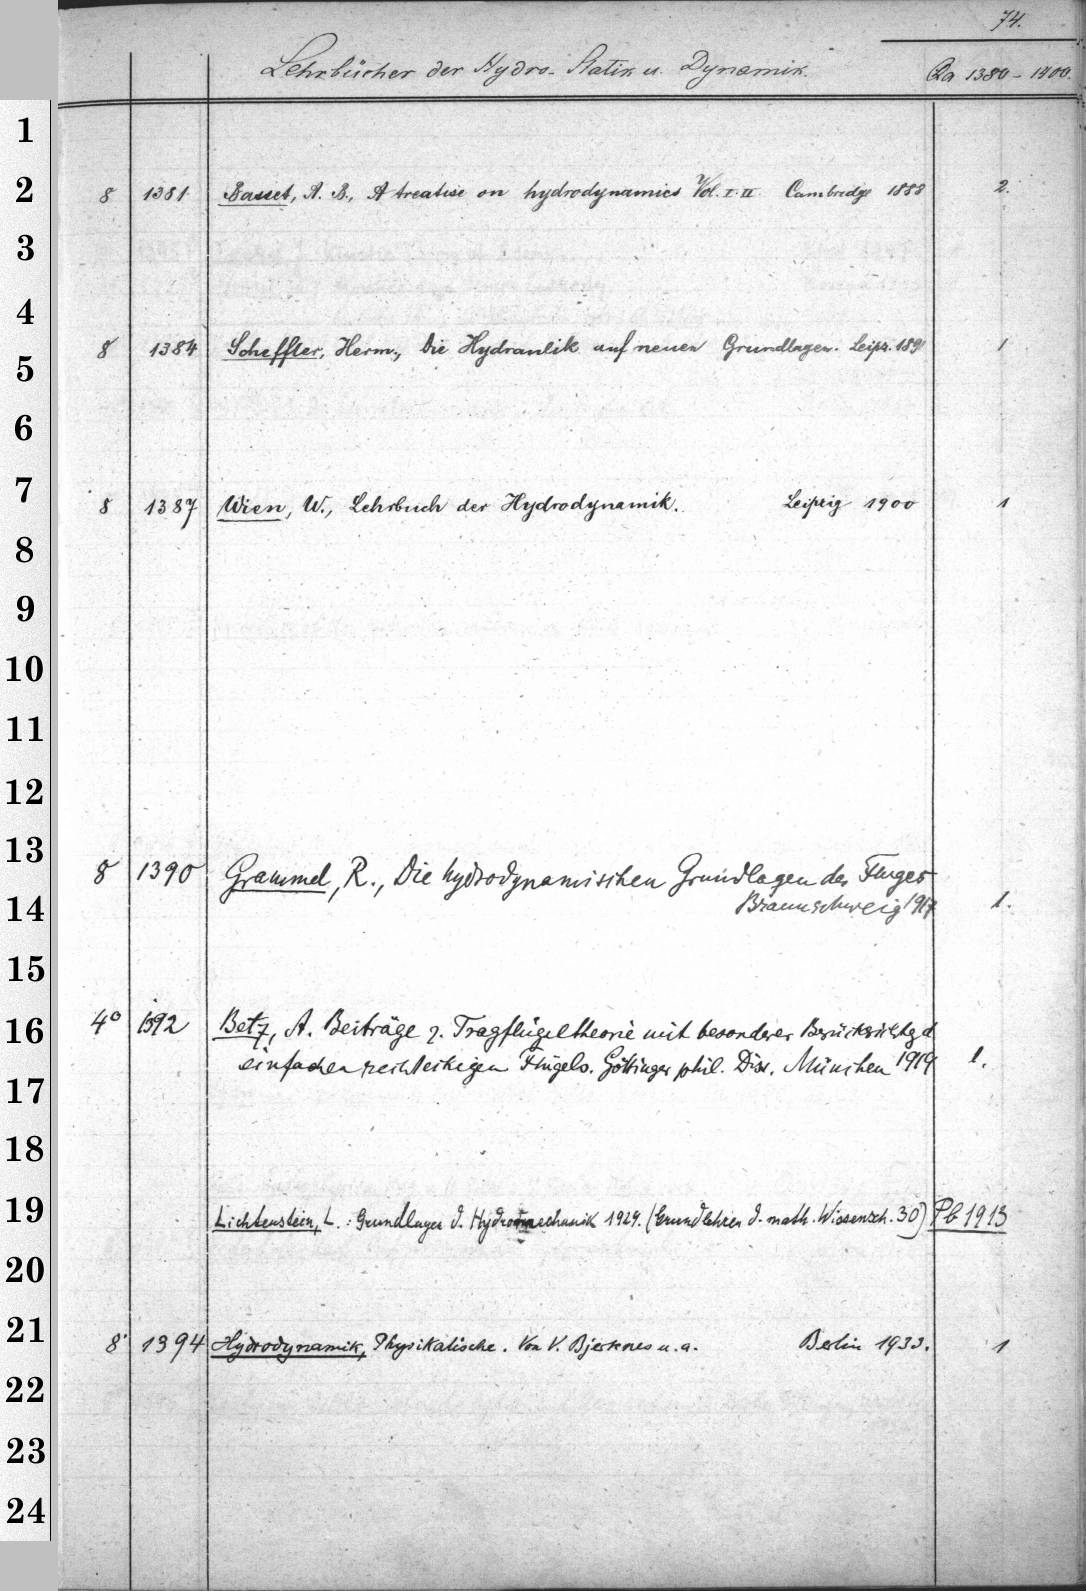 74.
Lehrbücher der Hydro- Statik u. Dynamik. Qa 1380 - 1400.
1
2
8 1381 Basset, A. B., A treatise on hydrodynamics Vol. I. II Cambridge 1888 2.
3
4
8 1384 Scheffler, Herm., Die Hydraulik auf neuen Grundlagen. Leipz. 1891 1
5
6
7
8 1387 Wien, W., Lehrbuch der Hydrodynamik. Leipzig 1900 1
8
9
10
11
12
13
8 1390 Grammel, R., Die hydrodynamischen Grundlagen des Fluges
14
Braunschweig 1917 1.
15
16
4° 1392 Betz, A. Beiträge z. Tragflügeltheorie mit besonderer Berücksichtgg d.
einfachen rechteckigen Flügels. Göttinger phil. Diss. München 1919 1.
17
18
19
Lichtenstein, L.: Grundlagen d. Hydromechanik 1929. (Grundlehren d. math. Wissensch. 30) Pb 1913
20
21
8° 1394 Hydrodynamik, Physikalische. Von V. Bjerknes u. a. Berlin 1933. 1
22
23
24